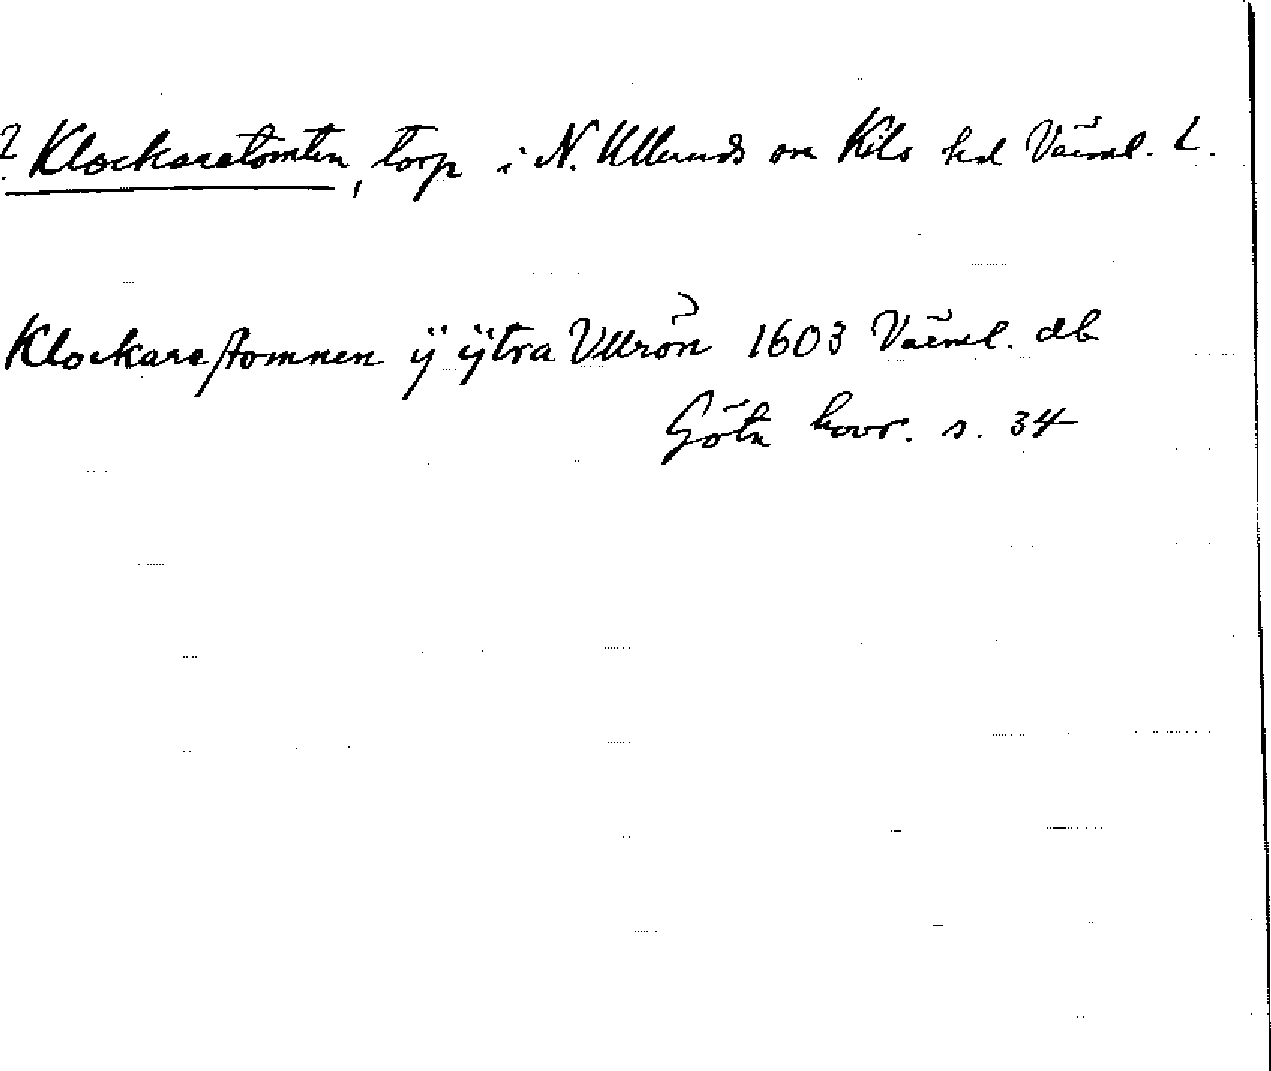 ? Klockaretomten, torp i N. Ulleruds sn Kils hd Värml. L.
Klockarestomnen ÿ ÿtra Vllrön 1603 Värml. db
Göta hovr. s. 34